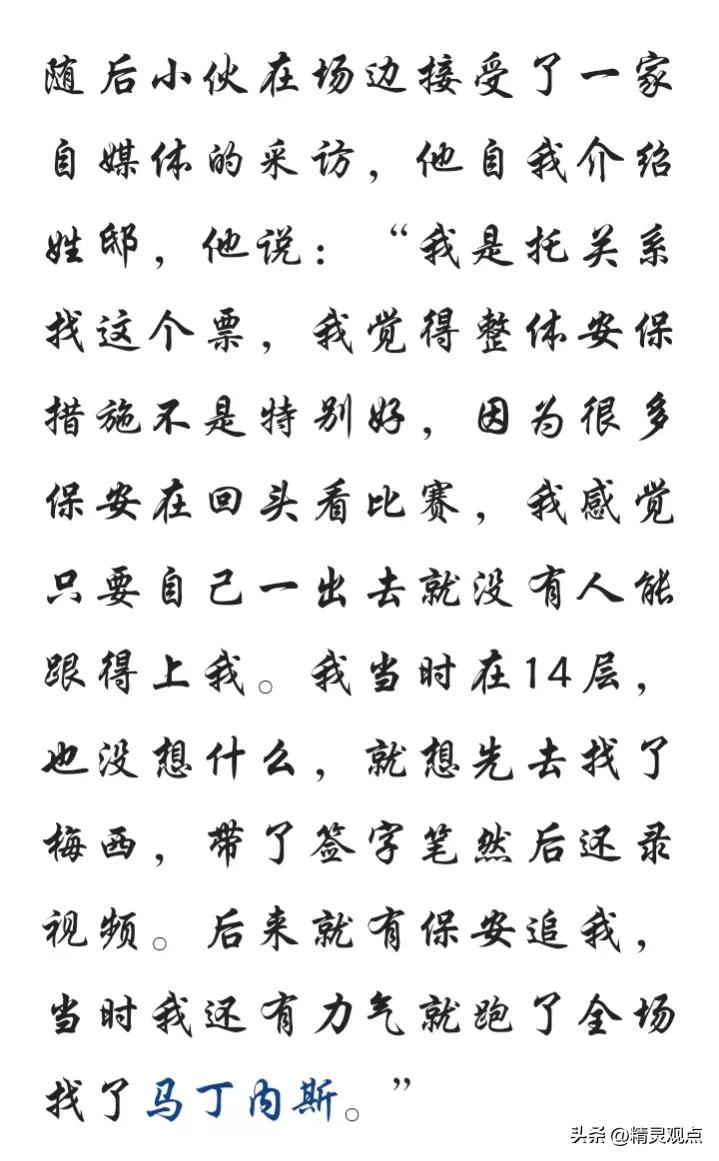 随后小伙在场边接受了一家
自媒体的采访，他自我介绍
姓邸，他说：“我是托关系
找这个票，我觉得整体安保
措施不是特别好，因为很多
保安在回头看比赛，我感觉
只要自己一出去就没有人能
跟得上我。我当时在14层，
也没想什么，就想先去找了
梅西，带了签字笔然后还录
视频。后来就有保安追我，
当时我还有力气就跑了全场
找了马丁内斯。”
头条 @精灵观点